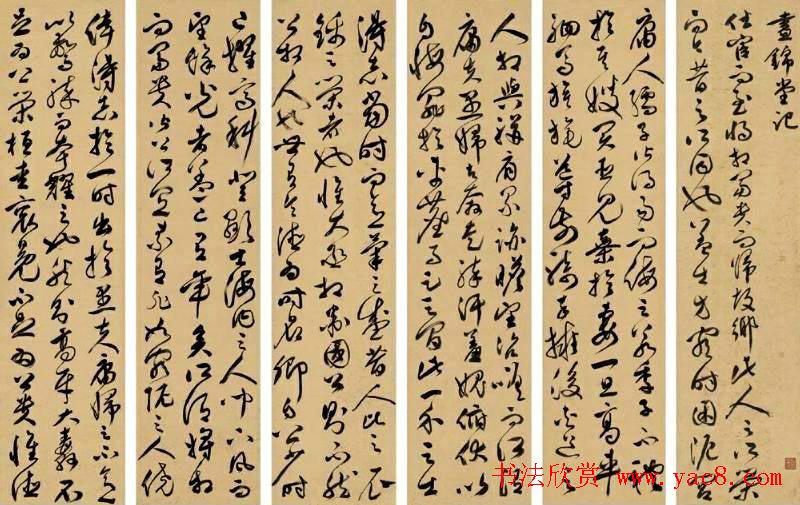 晝錦堂記
仕宦而至將相富貴而歸故鄉此人之所榮
而今昔之所同也蓋士方窮時困
庸人孺子皆得易而侮之若季子不禮
於其嫂買臣見棄於妻一旦高車
駟馬旗旄導前騎卒擁後夾道之
人相與駢肩累跡瞻望咨嗟而所謂
庸夫愚婦者奔走駭汗羞愧俯伏以
自悔罪於車塵馬足之間此一介之士
得志當時而意氣之盛昔人比之衣
錦之榮者也惟大丞相衛國公則不然
公相人也世有令德為時名卿自公少時
已擢高科登顯士海內之人聞下風而
望餘光者蓋亦有年矣所謂將相
而富貴皆公所宜素有非如窮阨之人僥
倖得志於一時出於愚夫庸婦之不意
以驚駭而夸耀之也然則高牙大纛不
足為公榮桓圭袞冕不足為公貴惟德
书法欣赏
www.yac8.com